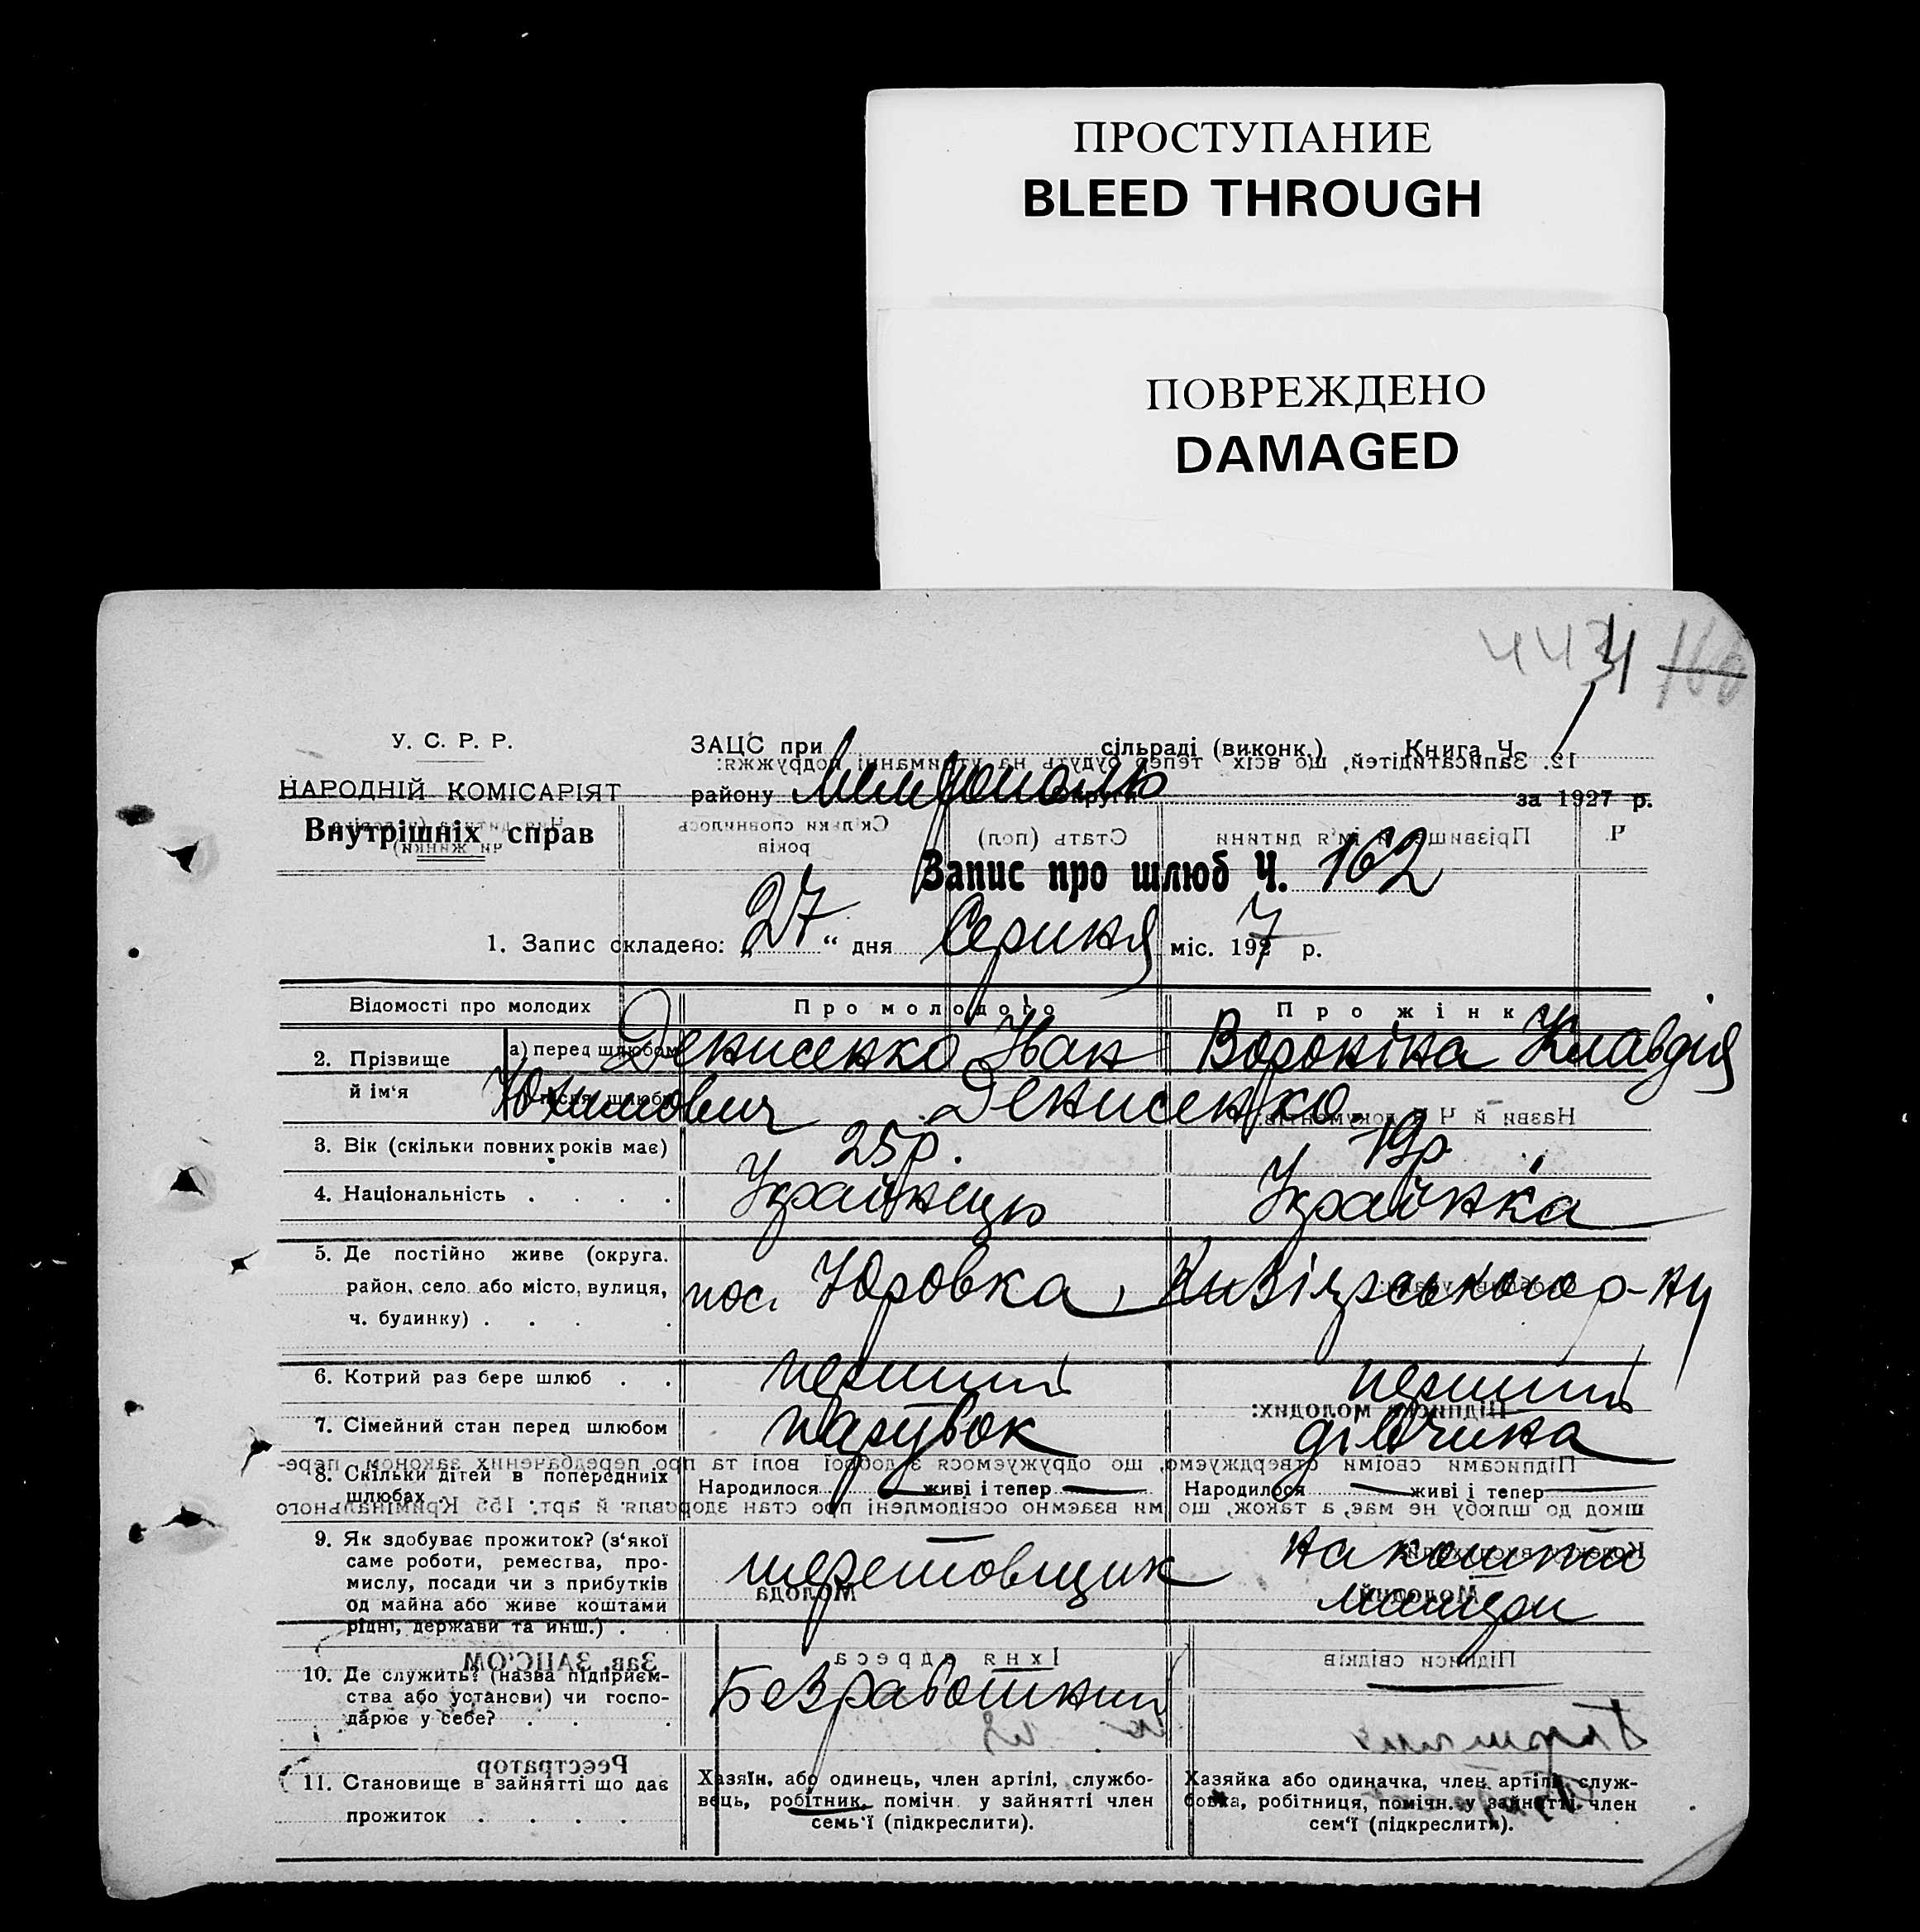 ПРОСТУПАНИЕ
BLEED THROUGH
ПОВРЕЖДЕНО
DAMAGED
У. С. Р. Р.
НАРОДНІЙ КОМІСАРІЯТ
Внутрішніх справ
ЗАЦС при сільраді (виконк.) Книга Ч. 1
району округи за 1927 р.
Запис про шлюб Ч. 162
1. Запис складено: „27“ дня Серпня міс. 1927 р.
Відомості про молодих
Про молодого
Про жінку
2. Прізвище й ім'я
а) перед шлюбом
Денисенко Іван
Вороніна Клавдія
після шлюбу
Юхимович Денисенко.
3. Вік (скільки повних років має)
25р.
19р.
4. Національність . . . .
Українець
Українка
5. Де постійно живе (округа,
район, село або місто, вулиця,
ч. будинку) . . . .
пос. Юровка, Кизіярського р-ну
6. Котрий раз бере шлюб . .
перший
перший
7. Сімейний стан перед шлюбом
парубок
дівчина
8. Скільки дітей в попередніх
шлюбах .
Народилося — живі і тепер —
Народилося — живі і тепер —
9. Як здобуває прожиток? (з'якої
саме роботи, ремества, про-
мислу, посади чи з прибутків
од майна або живе коштами
рідні, держави та инш.) .
шеретовщик
на кошта
матери
10. Де служить? (назва підприєм-
ства або установи) чи госпо-
дарює у себе? . . .
Безработний
—
11. Становище в зайнятті що дає
прожиток . . . .
Хазяїн, або одинець, член артілі, службо-
вець, робітник, помічн. у зайнятті член
семь'ї (підкреслити).
Хазяйка або одиначка, член артілі, служ-
бовка, робітниця, помічн. у зайнятті член
сем'ї (підкреслити).